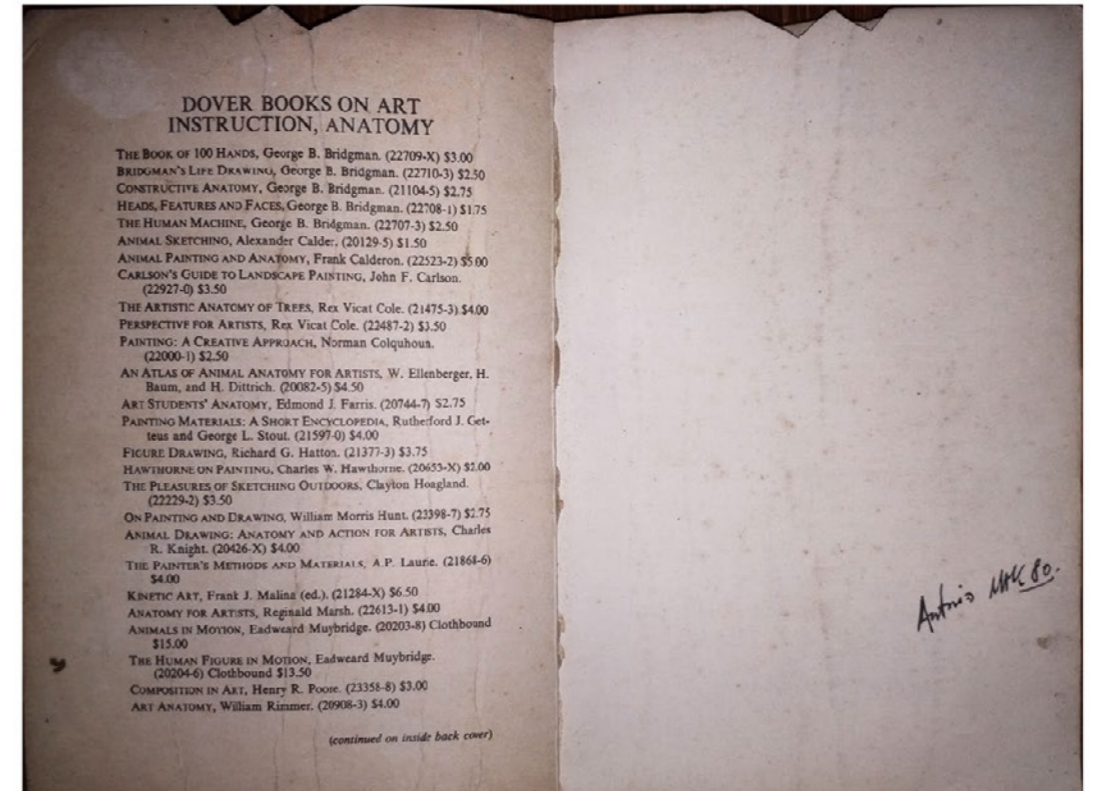 DOVER BOOKS ON ART
INSTRUCTION, ANATOMY
THE BOOK OF 100 HANDS, George B. Bridgman. (22709-X) $3.00
BRIDGMAN'S LIFE DRAWING, George B. Bridgman. (22710-3) $2.50
CONSTRUCTIVE ANATOMY, George B. Bridgman. (21104-5) $2.75
HEADS, FEATURES AND FACES, George B. Bridgman. (22708-1) $1.75
THE HUMAN MACHINE, George B. Bridgman. (22707-3) $2.50
ANIMAL SKETCHING, Alexander Calder. (20129-5) $1.50
ANIMAL PAINTING AND ANATOMY, Frank Calderon. (22523-2) $5.00
CARLSON'S GUIDE TO LANDSCAPE PAINTING, John F. Carlson.
(22927-0) $3.50
THE ARTISTIC ANATOMY OF TREES, Rex Vicat Cole. (21475-3) $4.00
PERSPECTIVE FOR ARTISTS, Rex Vicat Cole. (22487-2) $3.50
PAINTING: A CREATIVE APPROACH, Norman Colquhoun.
(22000-1) $2.50
AN ATLAS OF ANIMAL ANATOMY FOR ARTISTS, W. Ellenberger, H.
Baum, and H. Dittrich. (20082-5) $4.50
ART STUDENTS' ANATOMY, Edmond J. Farris. (20744-7) $2.75
PAINTING MATERIALS: A SHORT ENCYCLOPEDIA, Rutherford J. Get-
tens and George L. Stout. (21597-0) $4.00
FIGURE DRAWING, Richard G. Hatton. (21377-3) $3.75
HAWTHORNE ON PAINTING, Charles W. Hawthorne. (20653-X) $2.00
THE PLEASURES OF SKETCHING OUTDOORS, Clayton Hoagland.
(22229-2) $3.50
ON PAINTING AND DRAWING, William Morris Hunt. (23398-7) $2.75
ANIMAL DRAWING: ANATOMY AND ACTION FOR ARTISTS, Charles
R. Knight. (20426-X) $4.00
THE PAINTER'S METHODS AND MATERIALS, A.P. Laurie. (21868-6)
$4.00
KINETIC ART, Frank J. Malina (ed.). (21284-X) $6.50
ANATOMY FOR ARTISTS, Reginald Marsh. (22613-1) $4.00
ANIMALS IN MOTION, Eadweard Muybridge. (20203-8) Clothbound
$15.00
THE HUMAN FIGURE IN MOTION, Eadweard Muybridge.
(20204-6) Clothbound $13.50
COMPOSITION IN ART, Henry R. Poore. (23358-8) $3.00
ART ANATOMY, William Rimmer. (20908-3) $4.00
(continued on inside back cover)
Antonio 80.